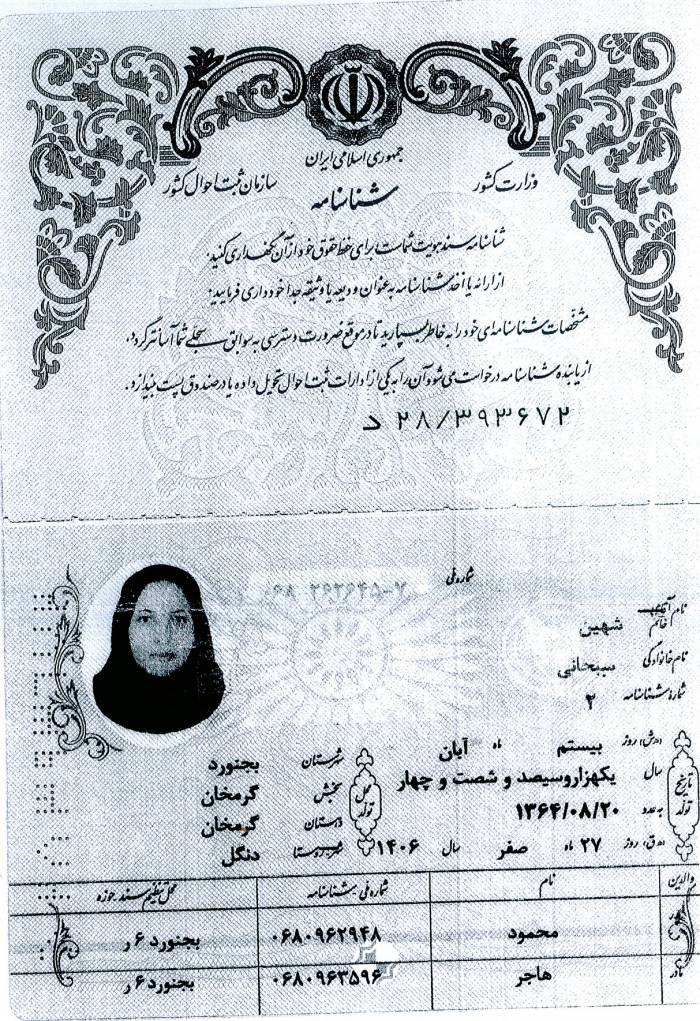 جمهوری اسلامی ایران
وزارت کشور
سازمان ثبت احوال کشور
شناسنامه
شناسنامه سند هویت شماست برای حفظ حقوق خود از آن نگهداری کنید.
از ارائه یا اخذ شناسنامه به عنوان ودیعه یا وثیقه جدا خودداری فرمایید.
مشخصات شناسنامه‌ای خود را به خاطر بسپارید تا در موقع ضرورت دسترسی به سوابق سجلی شما آسانتر گردد.
از یابنده شناسنامه درخواست می‌شود آن را به یکی از ادارات ثبت احوال تحویل داده یا در صندوق پست بیندازد.
۲۸/۳۹۳۶۷۲ د
شماره ملی
نام آقای خانم شهین
نام خانوادگی سبحانی
شماره شناسنامه ۲
تاریخ تولد
(ه.ش) روز بیستم ماه آبان
سال یکهزاروسیصد و شصت و چهار
به عدد ۱۳۶۴/۰۸/۲۰
(ه.ق) روز ۲۷ ماه صفر سال ۱۴۰۶
محل تولد
شهرستان بجنورد
بخش گرمخان
دهستان گرمخان
شهر/روستا دنگل
والدین نام شماره ملی / شناسنامه محل تنظیم سند / حوزه
پدر محمود ۰۶۸۰۹۶۲۹۴۸ بجنورد ۶ ر
مادر هاجر ۰۶۸۰۹۶۳۵۹۶ بجنورد ۶ ر